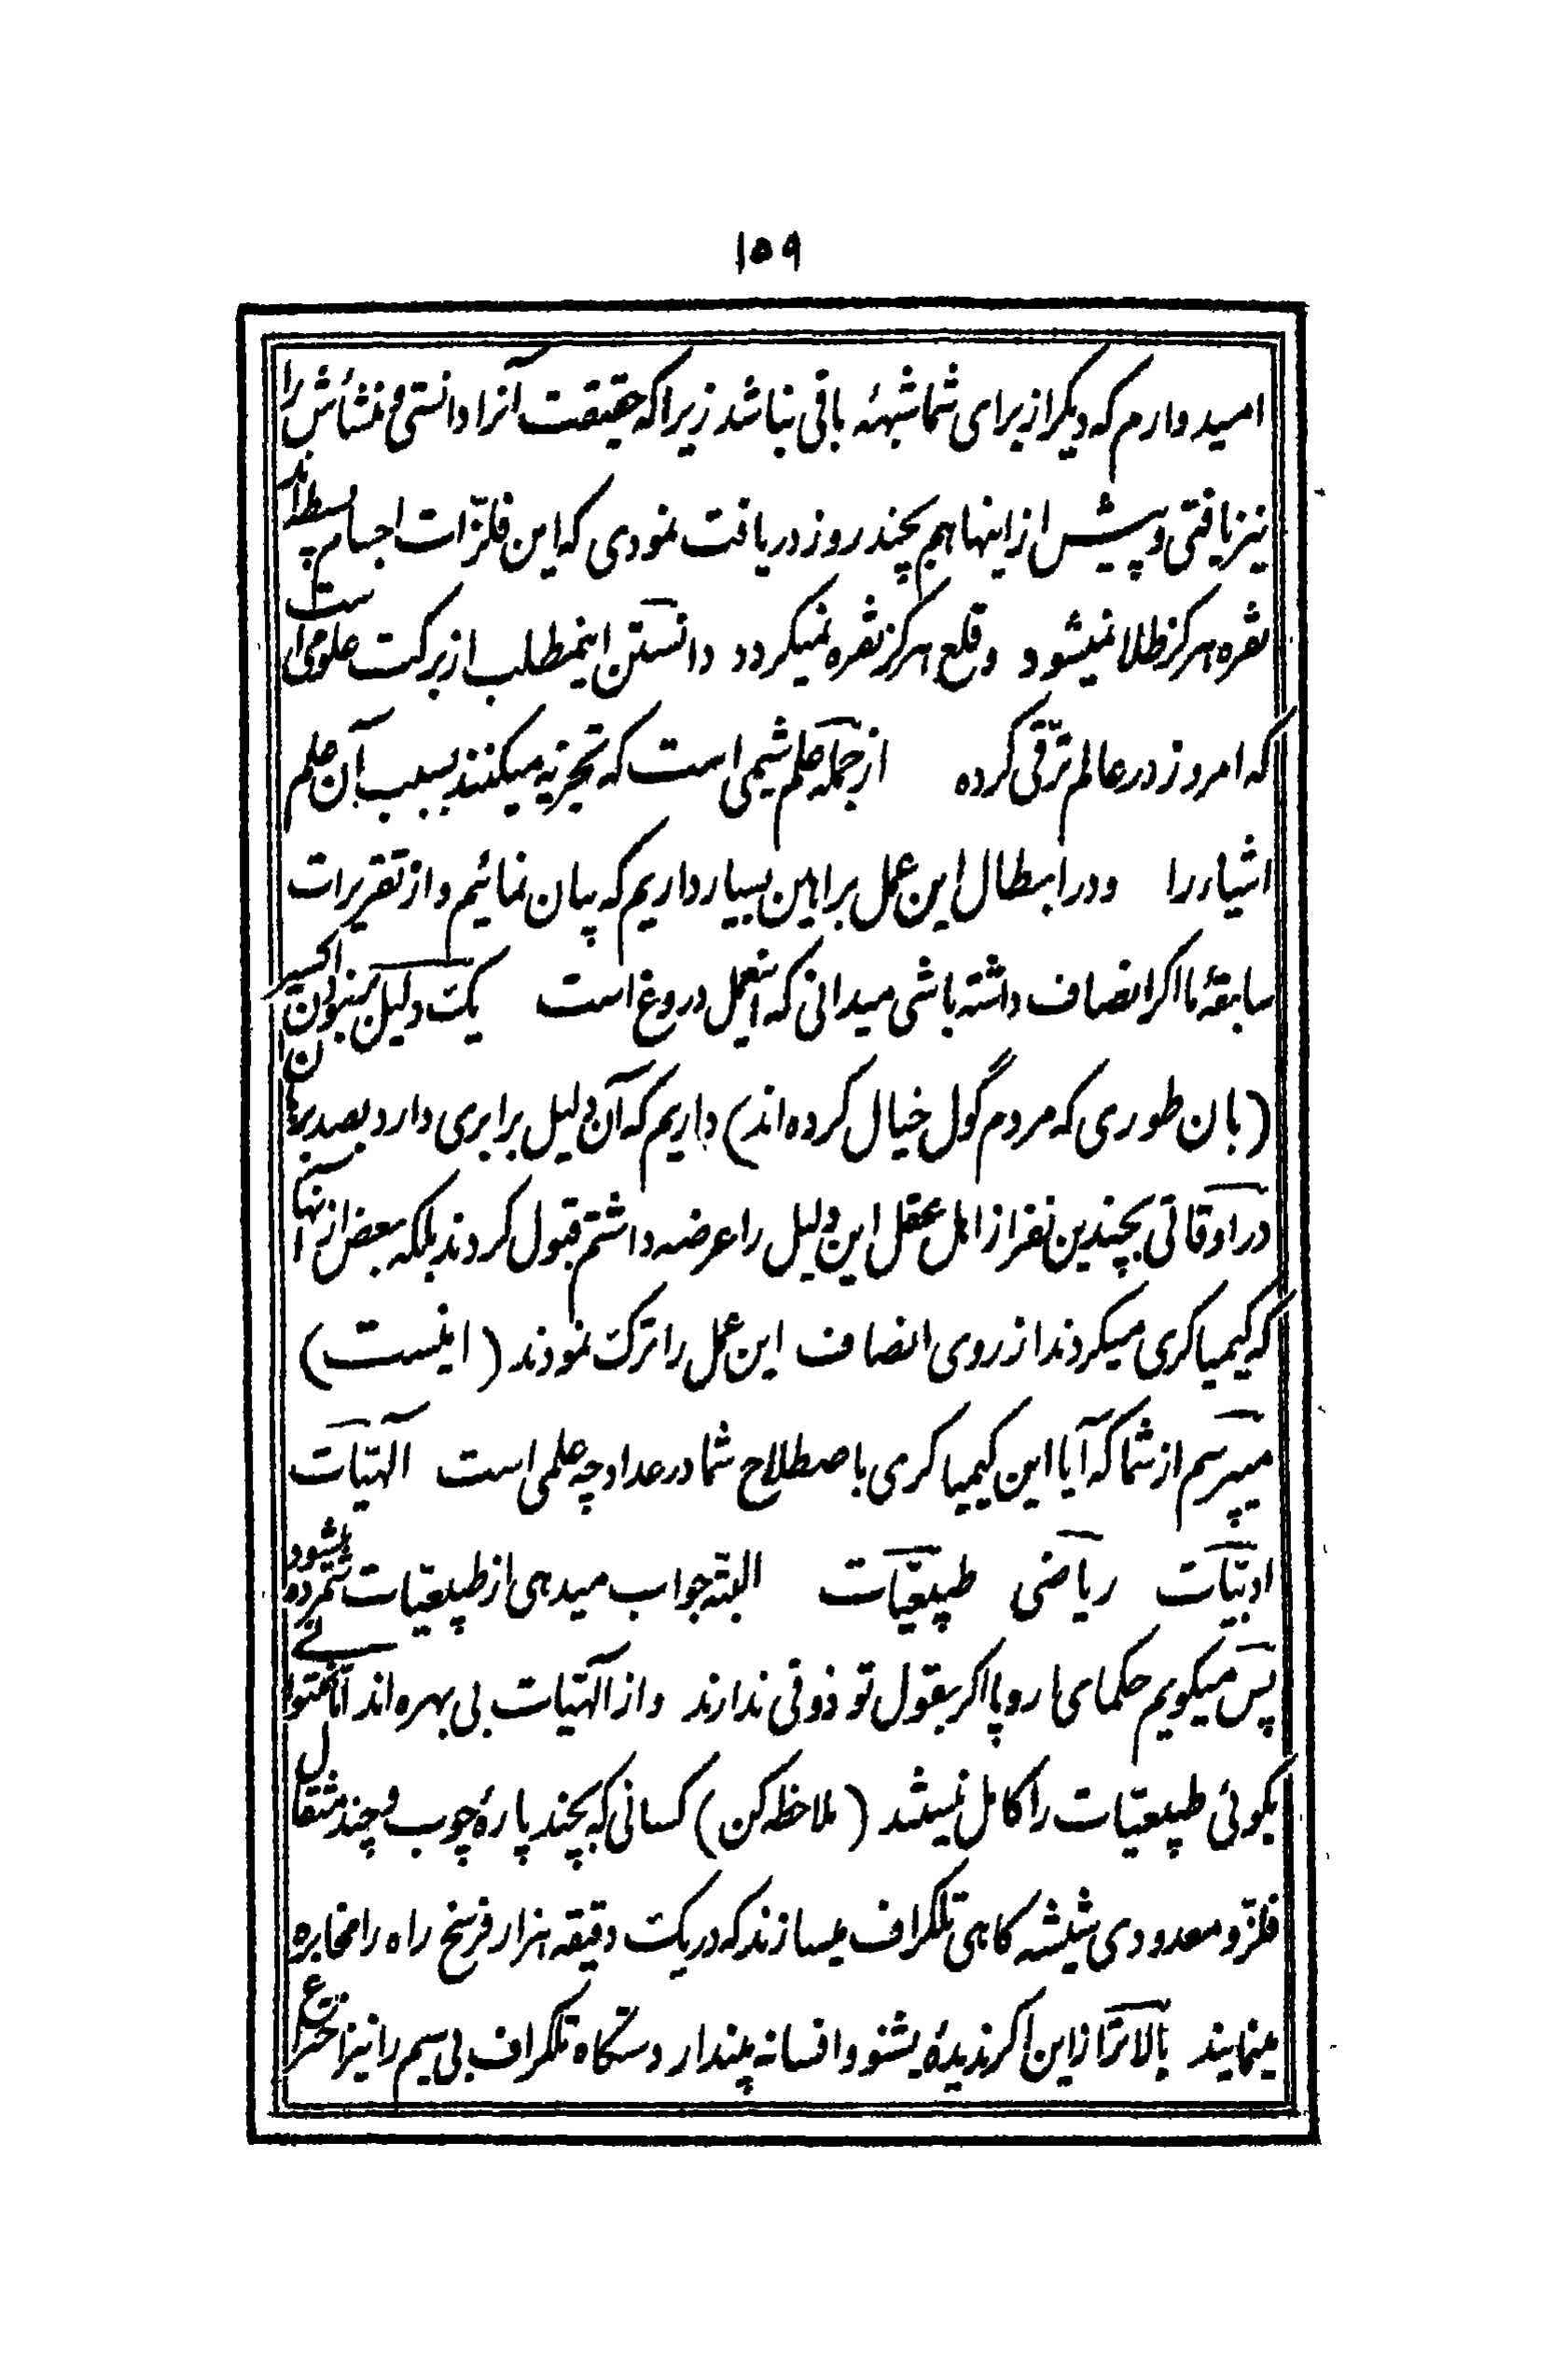 ۱۵۹
امیدوارم که دیکر از برای شما شبههٔ باقی نباشد زیرا که حقیقت آنرا دانستی و منشأش را
نیز یافتی و پیش از اینها هم بچند روز دریافت نمودی که این فلزّات اجسام بسیطه‌اند
نقره هرکز طلا نمیشود و قلع هرکز نقره نمیکردد دانستن اینمطلب از برکت علومی است
که امروز در عالم ترّقی کرده از جمله علم شیمی است که تجزیه میکنند بسبب آن علم
اشیاء را و در ابطال این عمل براهین بسیار داریم که بیان نمائیم و از تقریرات
سابقهٔ ما اکر انصاف داشته باشی میدانی که اینعمل دروغ است یک دلیل بر نبودن اکسیر
(بان طوری که مردم گول خیال کرده اند) داریم که آن دلیل برابری دارد بصد برهان
در اوقاتی بچندین نفر از اهل عقل این دلیل را عرضه داشتم قبول کردند بلکه بعض از آنها
که کیمیاکری میکردند از روی انصاف این عمل را ترک نمودند (اینست)
میپرسم از شما که آیا این کیمیاکری باصطلاح شما در عداد چه علمی است الهیّات
ادبیّات ریاضی طبیعیّات البته جواب میدهی از طبیعیّات شمرده میشود
پس میکویم حکمای اروپا اکر بقول تو ذوقی ندارند و از آلهیّات بی بهره اند امّا نمیتوانی
بکوئی طبیعیّات را کامل نیستند (ملاحظه کن) کسانی که بچند پارهٔ چوب و چند مثقال
فلزّ و معدودی شیشه کاهی تلکراف میسازند که در یک دقیقه هزار فرسخ راه را مخابره
مینمایند بالاتر از این اکر ندیدهٔ بشنو و افسانه مپندار دستکاه تلکراف بی سیم را نیز اختراع